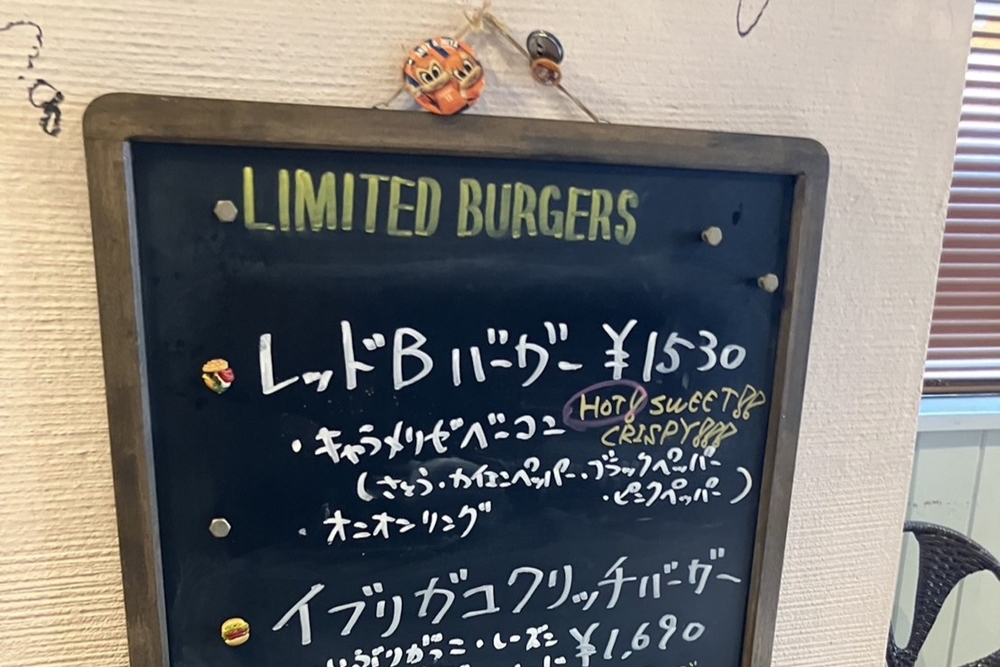 LIMITED BURGERS
レッドBバーガー ¥1530
HOT! SWEET!!
CRISPY!!!
・キャラメリゼベーコン
(さとう・カイエンペッパー・ブラックペッパー
・ピンクペッパー)
・オニオンリング
イブリガコクリッチバーガー
いぶりがっこ・レーズン ¥1,690